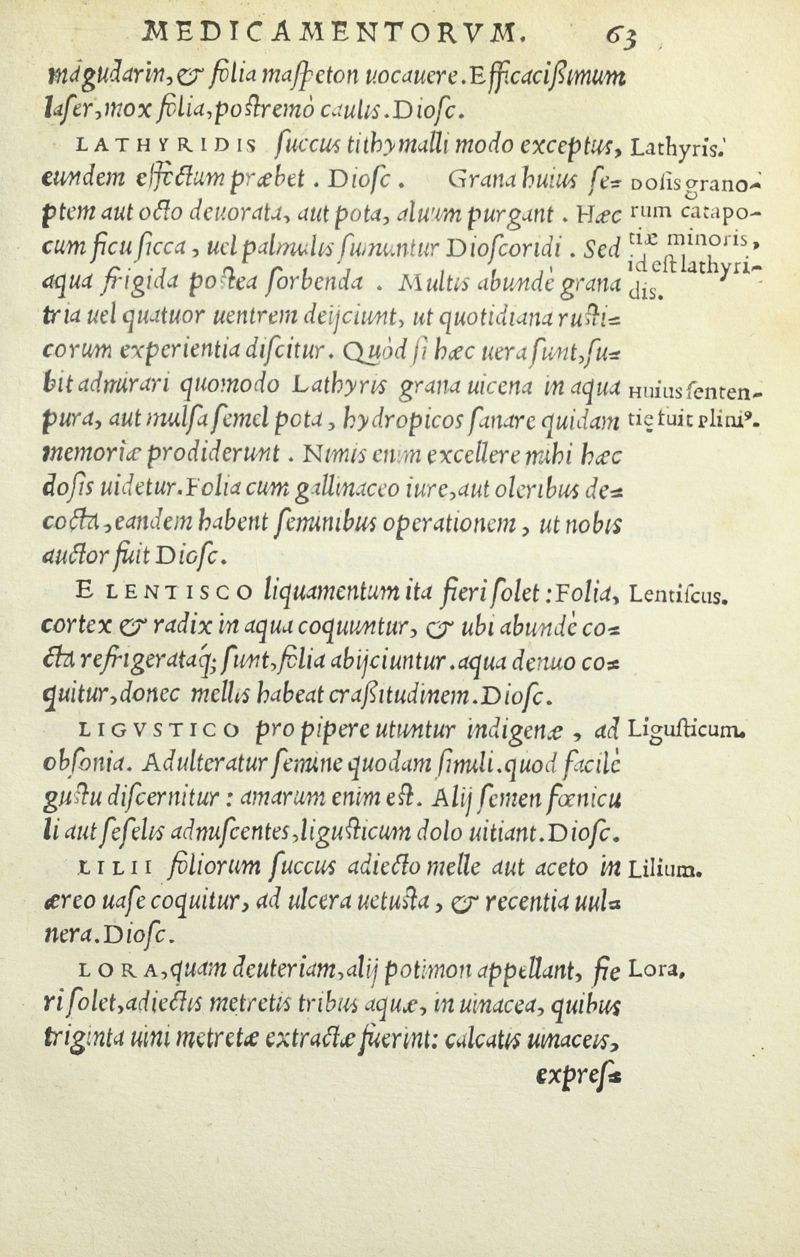 MEDICAMENTORVM. 63
magudarin,& folia maſpeton uocauere.Efficacißimum
laſer,mox folia,poſtremò caulis.Dioſc.
LATHYRIDIS ſuccus tithymalli modo exceptus, Lathyris.
eundem effectum præbet. Dioſc. Grana huius ſe= Doſis grano-
ptem aut octo deuorata, aut pota, aluum purgant. Hæc rum catapo-
cum ficu ſicca, uel palmulis ſumuntur Dioſcoridi. Sed tiæ minoris,
aqua frigida poſtea ſorbenda. Multis abundè grana id eſt lathyri-
dis.
tria uel quatuor uentrem deijciunt, ut quotidiana ruſti=
corum experientia diſcitur. Quòd ſi hæc uera ſunt,ſu=
bit admirari quomodo Lathyris grana uicena in aqua Huius ſenten-
pura, aut mulſa ſemel pota, hydropicos ſanare quidam tię fuit Pliniꝰ.
memoriæ prodiderunt. Nimis enim excellere mihi hæc
doſis uidetur.Folia cum gallinaceo iure,aut oleribus de=
cocta,eandem habent ſeminibus operationem, ut nobis
auctor fuit Dioſc.
E LENTISCO liquamentum ita fieri ſolet:Folia, Lentiſcus.
cortex & radix in aqua coquuntur, & ubi abundè co=
cta refrigerataq; ſunt,folia abijciuntur.aqua denuo co=
quitur,donec mellis habeat craßitudinem.Dioſc.
LIGVSTICO pro pipere utuntur indigenæ, ad Liguſticum.
obſonia. Adulteratur ſemine quodam ſimili.quod facilè
guſtu diſcernitur: amarum enim eſt. Alij ſemen fœnicu
li aut ſeſelis admiſcentes,liguſticum dolo uitiant.Dioſc.
LILII foliorum ſuccus adiecto melle aut aceto in Lilium.
æreo uaſe coquitur, ad ulcera uetuſta, & recentia uul=
nera.Dioſc.
LORA,quam deuteriam,alij potimon appellant, fie Lora.
ri ſolet,adiectis metretis tribus aquæ, in uinacea, quibus
triginta uini metretæ extractæ fuerint: calcatis uinaceis,
expreſ=